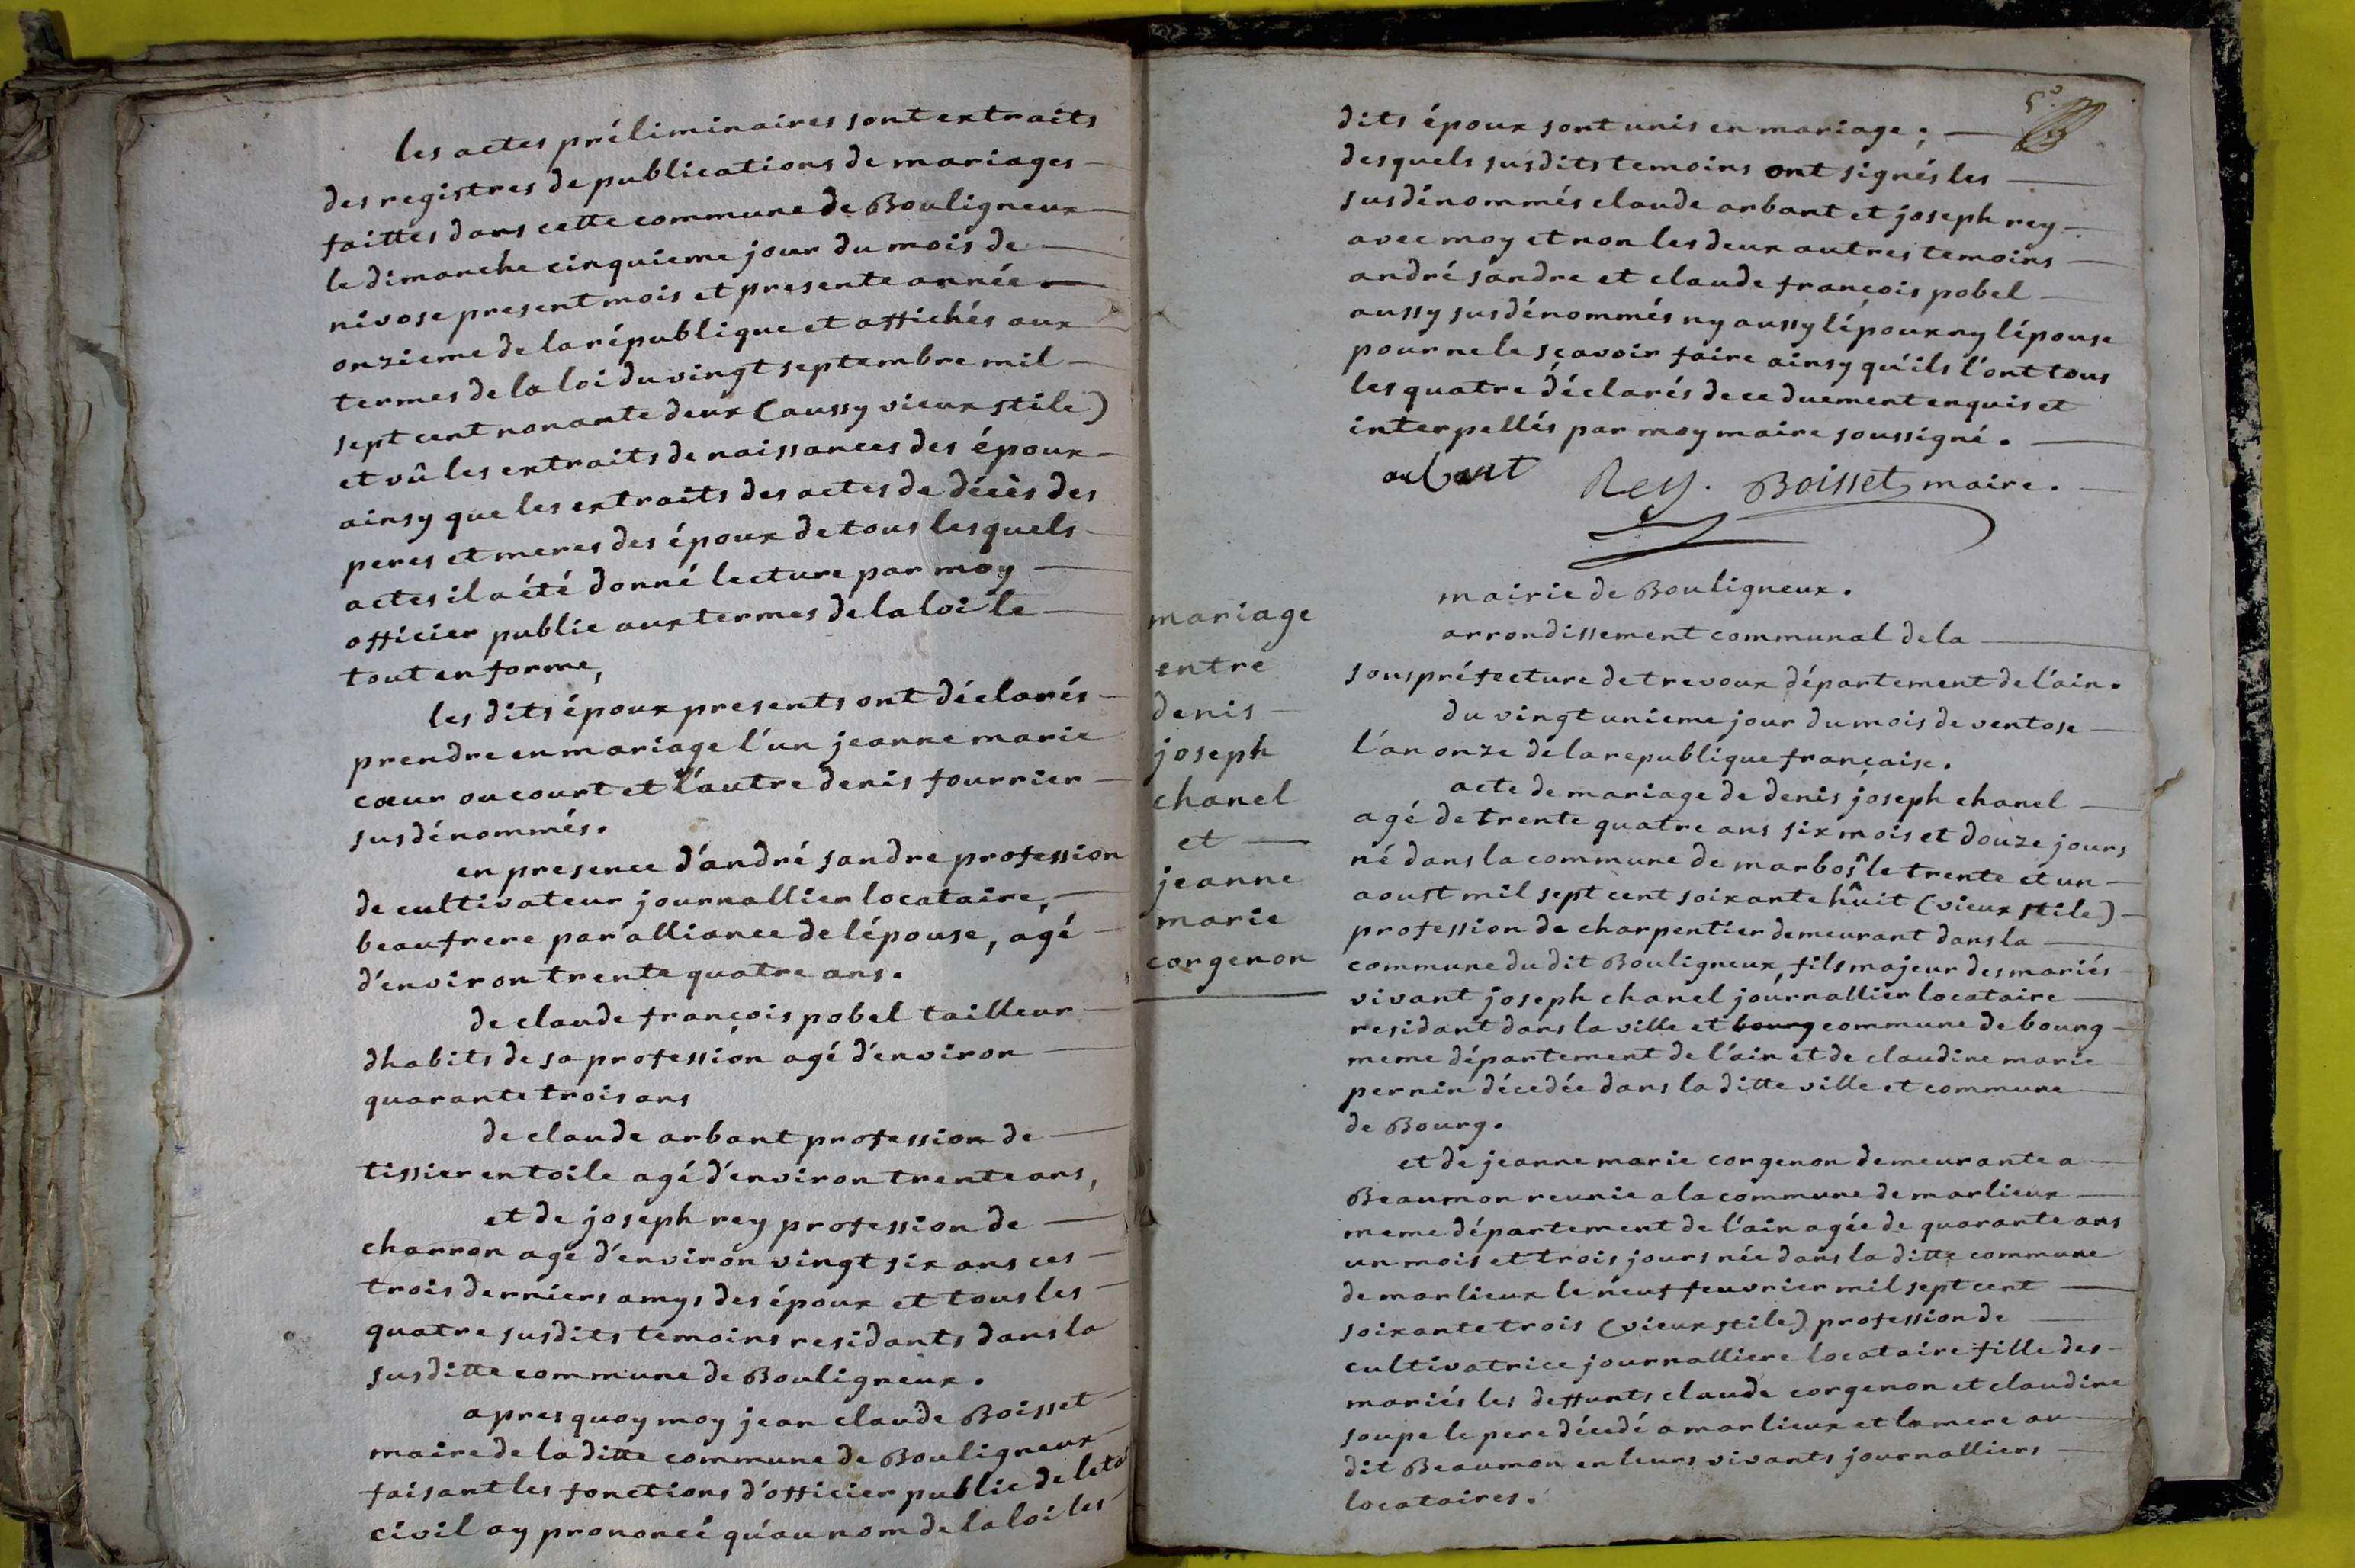 les actes préliminaires sont extraits
des registres de publications de mariages
faittes dans cette commune de Bouligneux
le dimanche cinquieme jour du mois de
nivose present mois et presente année
onzieme de la république et affichés aux
termes de la loi du vingt septembre mil
sept cent nonante deux (aussy vieux stile)
et vû les extraits de naissances des époux
ainsy que les extraits des actes de décès des
peres et meres des époux de tous lesquels
actes il a été donné lecture par moy
officier public aux termes de la loi le
tout en forme,
les dits époux presents ont déclarés
prendre en mariage l'un jeanne marie
cœur ou court et l'autre denis fourrier
susdénommés.
en presence d'andré sandre profession
de cultivateur journallier locataire,
beaufrere par alliance de lépouse, agé
d'environ trente quatre ans.
de claude françois pobel tailleur
dhabits de sa profession agé d'environ
quarante trois ans
de claude arbant profession de
tissier en toile agé d'environ trente ans,
et de joseph rey profession de
charron agé d'environ vingt six ans ces
trois derniers amys des époux et tous les
quatre susdits temoins residants dans la
susditte commune de Bouligneux.
apres quoy moy jean claude Boisset
maire de la ditte commune de Bouligneux
faisant les fonctions d'officier public de leta
civil ay prononcé qu'au nom de la loi les
dits époux sont unis en mariage;
desquels susdits temoins ont signés les
susdénommés claude arbant et joseph rey
avec moy et non les deux autres temoins
andré sandre et claude françois pobel
aussy susdénommés ny aussy l'époux ny l'épouse
pour ne le sçavoir faire ainsy qu'ils l'ont tous
les quatre déclarés de ce duement enquis et
interpellés par moy maire soussigné.
arbant Rey. Boisset maire.
mairie de Bouligneux.
arrondissement communal de la
souspréfecture de trevoux département de l'ain.
du vingt unieme jour du mois de ventose
l'an onze de la republique française.
mariage
entre
denis
joseph
chanel
et
jeanne
marie
corgenon
acte de mariage de denis joseph chanel
agé de trente quatre ans six mois et douze jours
né dans la commune de marbos le trente et un
aoust mil sept cent soixante hûit (vieux stile)
profession de charpentier demeurant dans la
commune du dit Bouligneux, fils majeur des mariés
vivant joseph chanel journallier locataire
residant dans la ville et bourg commune de bourg
meme département de l'ain et de claudine marie
pernin décedée dans la ditte ville et commune
de Bourg.
et de jeanne marie corgenon demeurante a
Beaumon reunie a la commune de marlieux
meme département de l'ain agée de quarante ans
un mois et trois jours née dans la ditte commune
de marlieux le neuf feuvrier mil sept cent
soixante trois (vieux stile) profession de
cultivatrice journalliere locataire fille des
mariés les deffunts claude corgenon et claudine
soupe le pere décedé a marlieux et la mere au
dit Beaumon en leurs vivants journalliers
locataires.